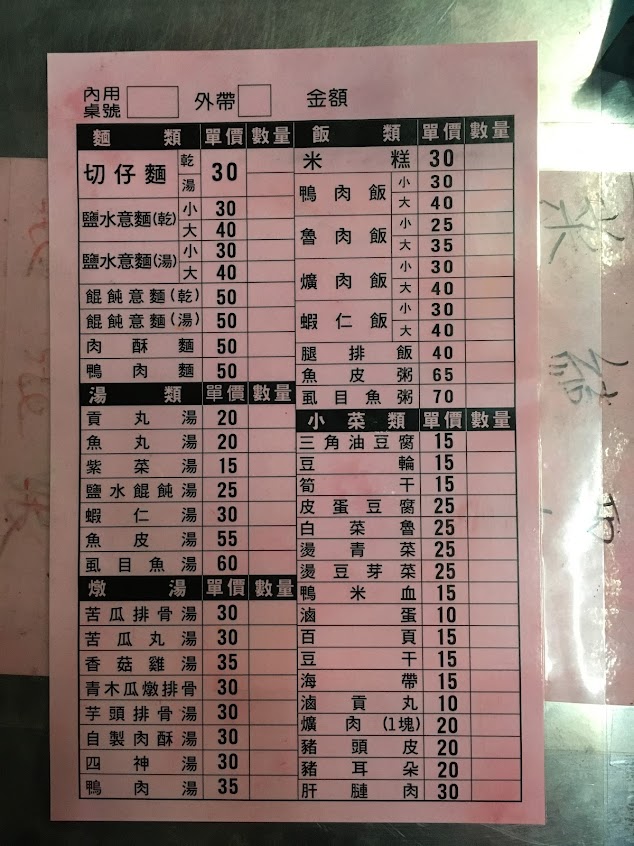 內用
桌號 外帶 金額
麵類 單價 數量
切仔麵 乾 湯 30
鹽水意麵(乾) 小 30
大 40
鹽水意麵(湯) 小 30
大 40
餛飩意麵(乾) 50
餛飩意麵(湯) 50
肉酥麵 50
鴨肉麵 50
湯類 單價 數量
貢丸湯 20
魚丸湯 20
紫菜湯 15
鹽水餛飩湯 25
蝦仁湯 30
魚皮湯 55
虱目魚湯 60
燉湯 單價 數量
苦瓜排骨湯 30
苦瓜丸湯 30
香菇雞湯 35
青木瓜燉排骨 30
芋頭排骨湯 30
自製肉酥湯 30
四神湯 30
鴨肉湯 35
飯類 單價 數量
米糕 30
鴨肉飯 小 30
大 40
魯肉飯 小 25
大 35
爌肉飯 小 30
大 40
蝦仁飯 小 30
大 40
腿排飯 40
魚皮粥 65
虱目魚粥 70
小菜類 單價 數量
三角油豆腐 15
豆輪 15
筍干 15
皮蛋豆腐 25
白菜魯 25
燙青菜 25
燙豆芽菜 25
鴨米血 15
滷蛋 10
百頁 15
豆干 15
海帶 15
滷貢丸 10
爌肉(1塊) 20
豬頭皮 20
豬耳朵 20
肝腱肉 30